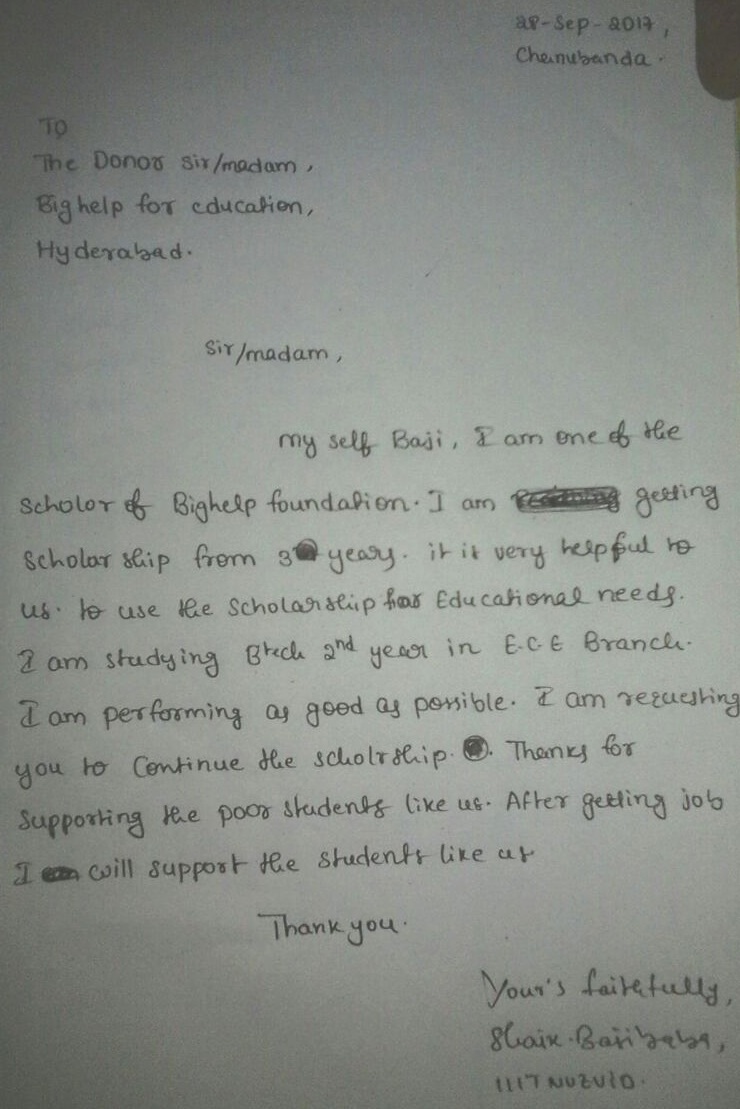 28-Sep-2017,
Chanubanda.
To
The Donor Sir/madam,
Big help for education,
Hyderabad.
Sir/madam,
my self Baji, I am one of the
Scholor of Bighelp foundation. I am getting
Scholar ship from 3 years. it is very helpful to
us. to use the Scholarship for Educational needs.
I am studying Btech 2nd year in E.C.E Branch.
I am performing as good as possible. I am requesting
you to Continue the scholrship. Thanks for
Supporting the poor students like us. After getting job
I will support the students like us
Thank you.
Your's faithfully,
Shaik.Bajibaba,
IIIT NUZVID.